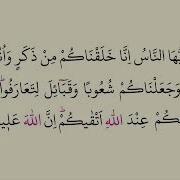 يُّهَا النَّاسُ اِنَّا خَلَقْنَاكُمْ مِنْ ذَكَرٍ وَاُنْ
وَجَعَلْنَاكُمْ شُعُوبًا وَقَبَٓائِلَ لِتَعَارَفُوا
كُمْ عِنْدَ اللّٰهِ اَتْقٰيكُمْ اِنَّ اللّٰهَ عَلٖي